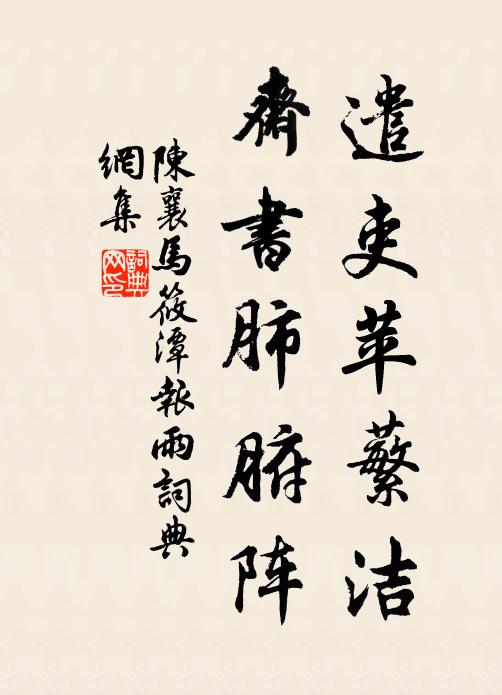 遣吏苹蘩洁
齋書肺腑阵
陳襄馬筱潭報雨詞典
網集
詞典
网印